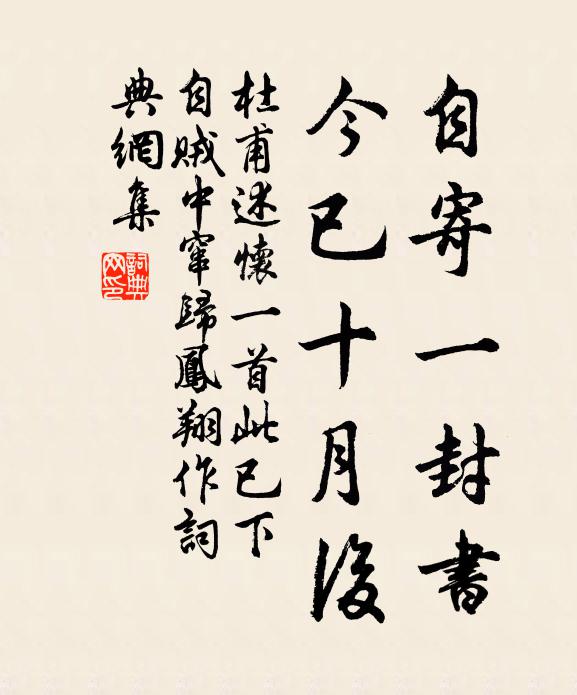 自寄一封書
今已十月後
杜甫述懷一首此已下
自賊中竄歸鳳翔作詞
典網集
詞典網印